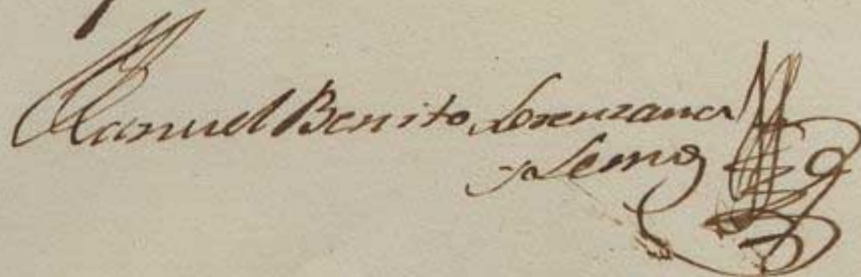 Manuel Benito Lorenzana
y Lemos